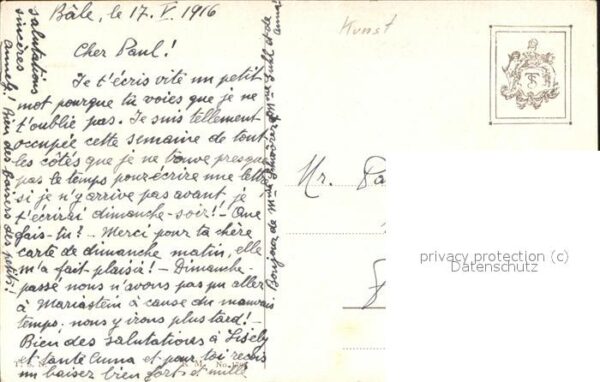 Bâle, le 17. V. 1916
Cher Paul!
Je t'écris vite un petit
mot pourque tu voies que je ne
t'oublie pas. Je suis tellement
occupée cette semaine de tout
les côtés que je ne trouve presque
pas le temps pour écrire une lettre,
si je n'y arrive pas avant, je
t'écrirai dimanche-soir! – Que
fais-tu? – Merci pour ta chère
carte de dimanche matin, elle
m'a fait plaisir! – Dimanche-
passé nous n'avons pas pu aller
à Mariastein à cause du mauvais
temps, nous y irons plus tard! –
Bien des salutations à Lisely
et tante Anna et pour toi reçois
un baiser bien fort et mille
salutations
sincères
Bien des baisers des petits!
Bonjour de Mme
et de
Anna!
Kunst
TS
Mr. Pa
privacy protection (c)
Datenschutz